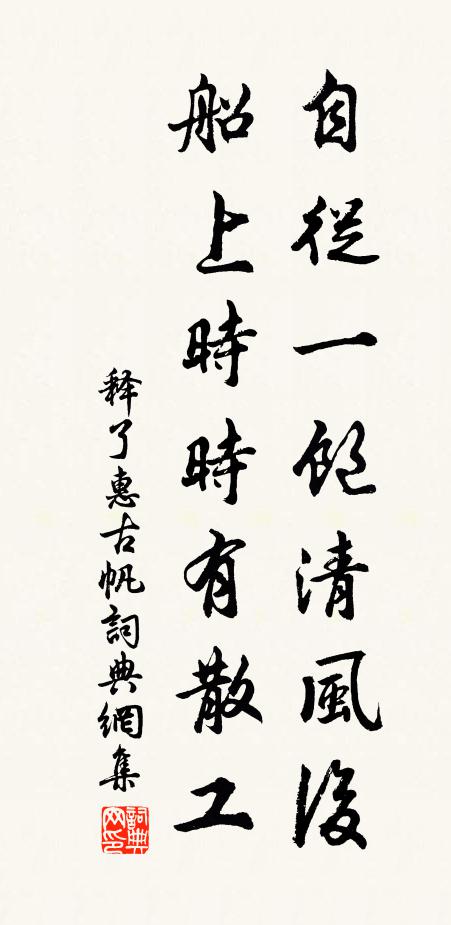 自從一飽清風後
船上時時有散工
释了惠古帆詞典網集
詞典網印